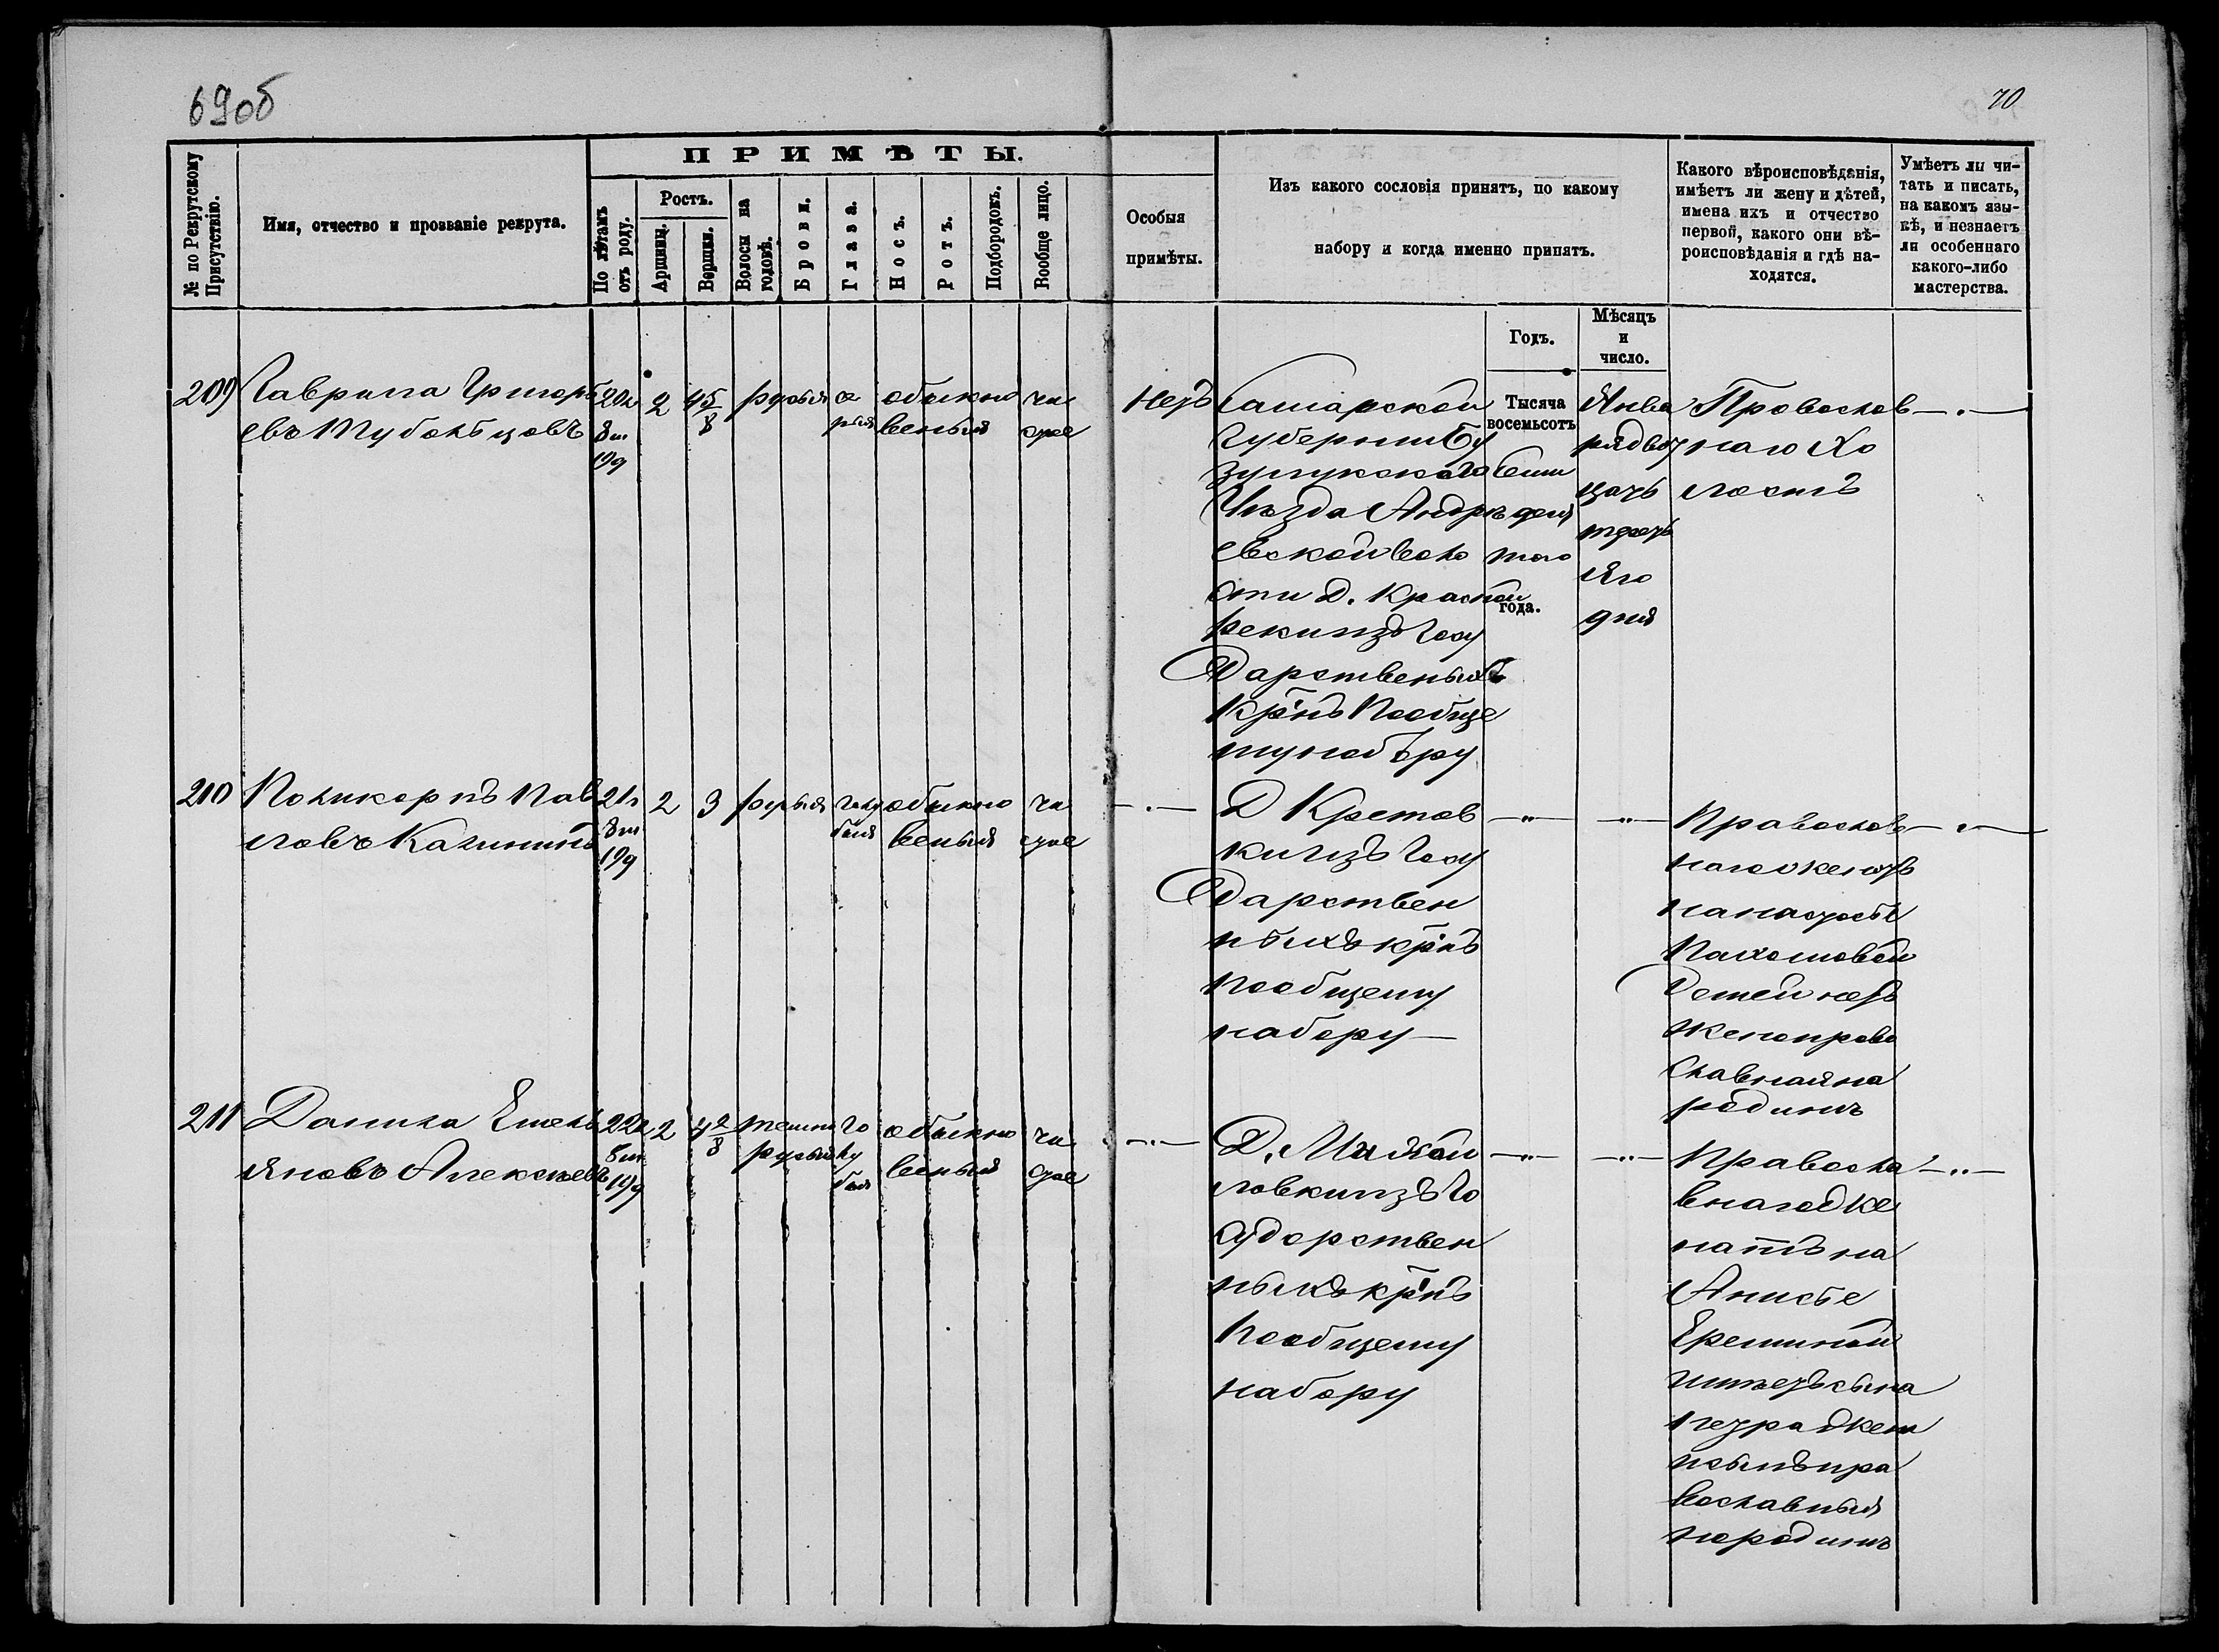 69об
70
ПРИМѢТЫ.
№ по Рекрутскому Присутствію.
Имя, отчество и прозваніе рекрута.
По лѣтамъ отъ роду.
Ростъ.
Аршины.
Вершки.
Волосы на головѣ.
Брови.
Глаза.
Носъ.
Ротъ.
Подбородокъ.
Вообще лицо.
Особыя
примѣты.
Изъ какого сословія принятъ, по какому
набору и когда именно принятъ.
Годъ.
Мѣсяцъ
и
число.
Какого вѣроисповѣданія,
имѣетъ ли жену и дѣтей,
имена ихъ и отчество
первой, какого они вѣ-
роисповѣданія и гдѣ на-
ходятся.
Умѣетъ ли чи-
тать и писать,
на какомъ язы-
кѣ, и незнаетъ
ли особеннаго
какого-либо
мастерства.
209 Гаврила Григорь
евъ
2 4 5/8 русыя
обыкно
веныя
чи
стое
нетъ
Самарской
Губернии Бу
зулукскаго
Уѣзда Андрѣ
евской воло
сти д. Красной
Госу
дарственыхъ
крнъ По обще
му набору
Тысяча
восемьсотъ
года.
Янва
ря
дня
Провослов
наго хо
лостъ
210 Поликарпъ Пав
ловъ Калининъ
21
2 3 русыя
голу
быя
обыкно
веныя
чи
стое
Д
Госу
дарствен
ныхъ крнъ
По общему
набору
Православ
наго женатъ
на настасьѣ
Пахомовой
Детей нетъ
жена право
славная на
родинѣ
211 Данила Емель
яновъ Алексѣевъ
22
2 4 2/8 темно
русыя
го
лу
быя
обыкно
веныя
чи
стое
Д. Михай
ловки изъ Го
сударствен
ныхъ крнъ
По общему
набору
Правосла
внаго же
натъ на
Анисье
Ереминой
имѣетъ сына
православныя
на родинѣ